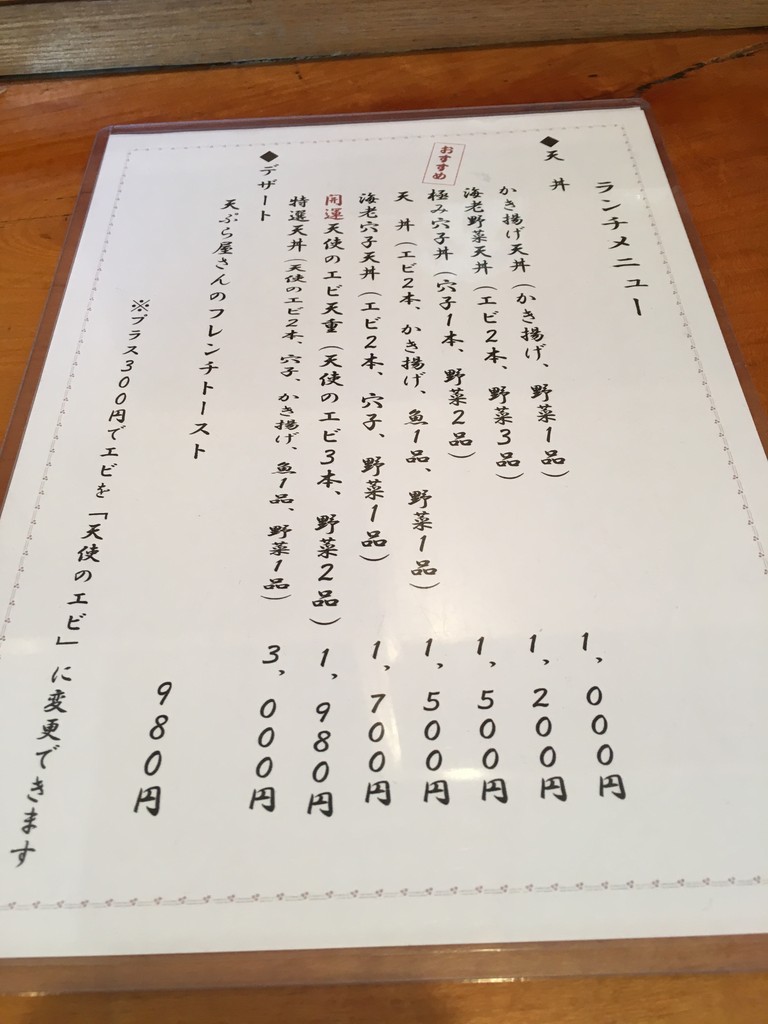 ランチメニュー
◆天 丼
かき揚げ天丼(かき揚げ、野菜1品) 1,000円
海老野菜天丼(エビ2本、野菜3品) 1,200円
おすすめ
極み穴子丼(穴子1本、野菜2品) 1,500円
天 丼(エビ2本、かき揚げ、魚1品、野菜1品) 1,500円
海老穴子天丼(エビ2本、穴子、野菜1品) 1,700円
開運天使のエビ天重(天使のエビ3本、野菜2品) 1,980円
特選天丼(天使のエビ2本、穴子、かき揚げ、魚1品、野菜1品) 3,000円
◆デザート
天ぷら屋さんのフレンチトースト 980円
※プラス300円でエビを「天使のエビ」に変更できます